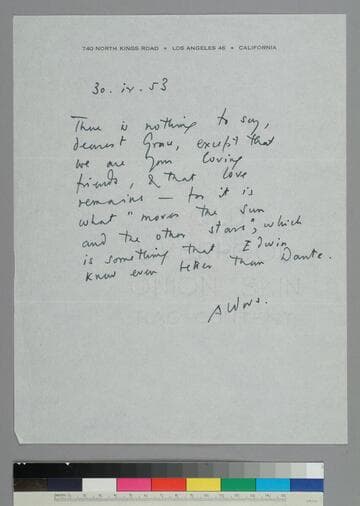 740 NORTH KINGS ROAD • LOS ANGELES 46 • CALIFORNIA
30. iv. 53
There is nothing to say,
dearest Grace, except that
we are your loving
friends, & that love
remains — for it is
what "moves the sun
and the other stars", which
is something that Edwin
knew even better than Dante.